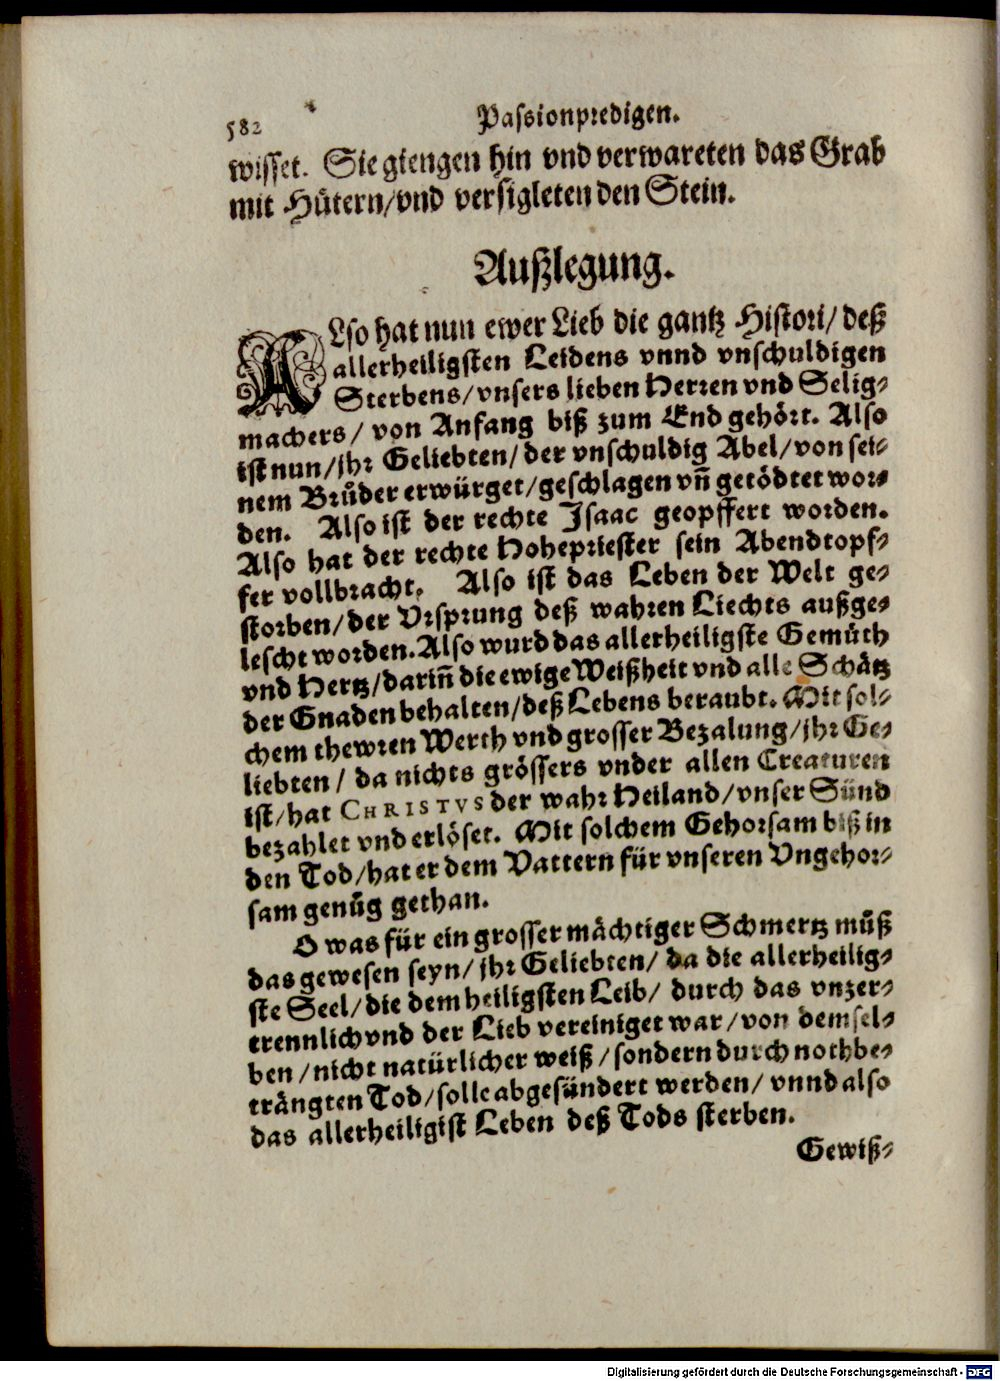 582 Passionpredigen.
wisset. Sie giengen hin vnd verwareten das Grab
mit Hütern/vnd versigleten den Stein.
Außlegung.
ALso hat nun ewer Lieb die gantz Histori/ deß
allerheiligsten Leidens vnnd vnschuldigen
Sterbens/vnsers lieben Herren vnd Selig-
machers/ von Anfang biß zum End gehört. Also
ist nun/jhr Geliebten/ der vnschuldig Abel/von sei-
nem Brůder erwürget/geschlagen vñ getödtet wor-
den. Also ist der rechte Isaac geopffert worden.
Also hat der rechte Hohepriester sein Abendtopf-
fer vollbracht. Also ist das Leben der Welt ge-
storben/der Vrsprung deß wahren Liechts außge-
lescht worden. Also wurd das allerheiligste Gemüth
vnd Hertz/dariñ die ewige Weißheit vnd alle Schätz
der Gnaden behalten/deß Lebens beraubt. Mit sol-
chem thewren Werth vnd grosser Bezalung/jhr Ge-
liebten/ da nichts grössers vnder allen Creaturen
ist/hat CHRISTVS der wahr Heiland/vnser Sünd
bezahlet vnd erlöset. Mit solchem Gehorsam biß in
den Tod/hat er dem Vattern für vnseren Vngehor-
sam genůg gethan.
O was für ein grosser mächtiger Schmertz můß
das gewesen seyn/jhr Geliebten/ da die allerheilig-
ste Seel/die dem heiligsten Leib/ durch das vnzer-
trennlich vnd der Lieb vereiniget war/von demsel-
ben/nicht natürlicher weiß/sondern durch nothbe-
trängten Tod/solle abgesündert werden/ vnnd also
das allerheiligist Leben deß Tods sterben.
Gewiß-
Digitalisierung gefördert durch die Deutsche Forschungsgemeinschaft - DFG